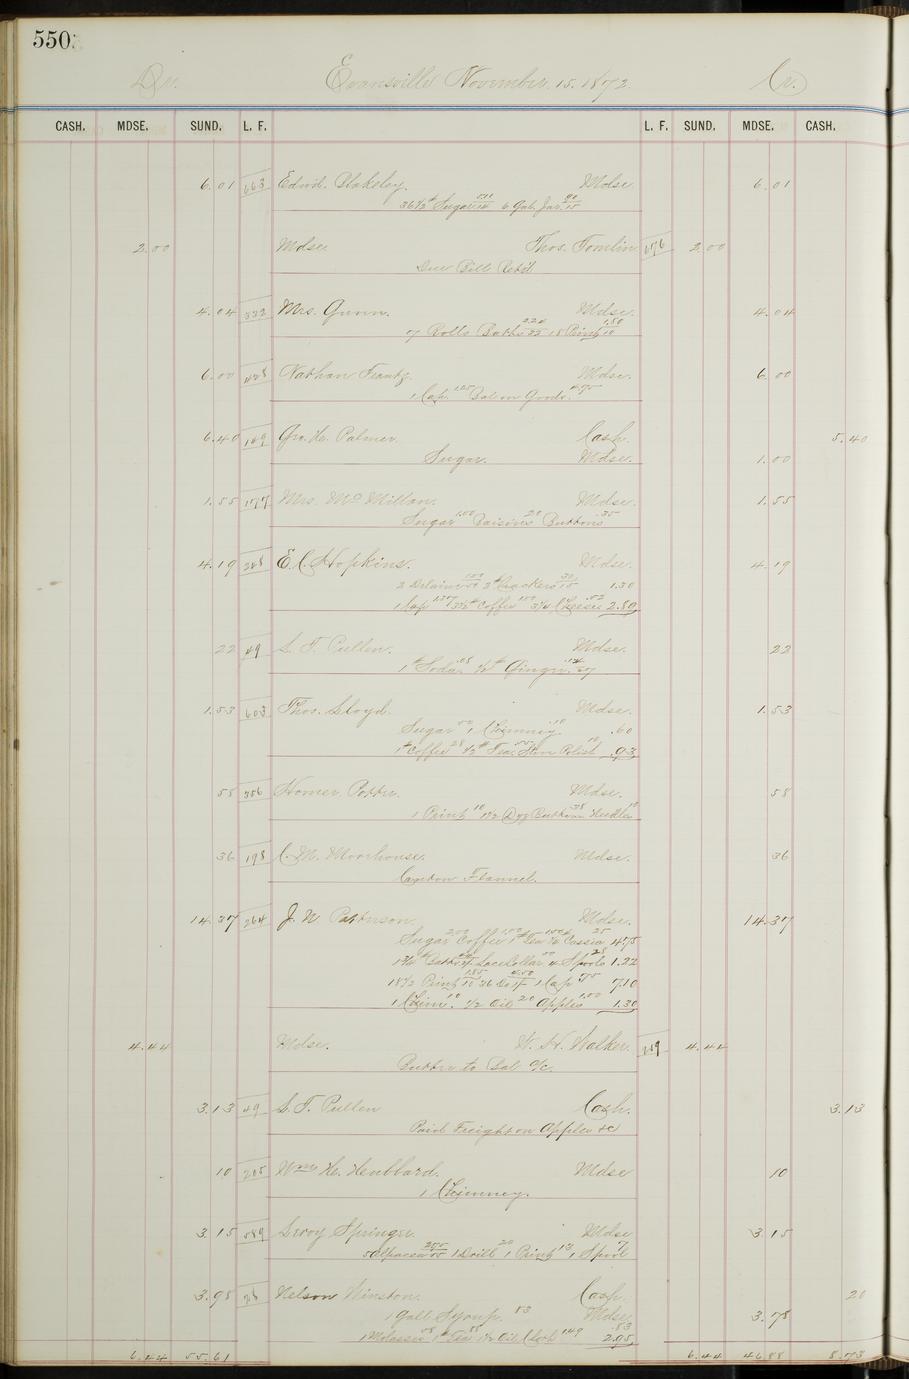 550
Dr. Evansville November. 15. 1872. Cr.
CASH. MDSE. SUND. L. F. L. F. SUND. MDSE. CASH.
6.01 663 Edwd. Blakeley. Mdse. 6.01
36 1/2 # Sugar 6 Gal. Jar
2.00 Mdse. Thos. Tomlin 676 2.00
Due Bill Retd
4.04 332 Mrs. Mdse. 4.04
7 Rolls Batts 2.24 18 Print 1.80 10
6.00 428 Nathan Frantz. Mdse. 6.00
1 Cap. 1.25 Bal on Goods. 4.75
6.40 Geo. H. Palmer. Cash. 5.40
Sugar. Mdse. 1.00
1.55 177 Mrs. McMillan. Mdse. 1.55
Sugar 1.00 Raisins 20 Buttons .35
4.19 E. C. Hopkins. Mdse. 4.19
2 Delaine 1.00 50 2 # Crackers 30 15 1.30
1 Cap Coffee 1.00 Cheese .52 2.89
22 49 S. T. Pullen. Mdse. 22
1 # Soda .08 1/2 # Ginger .14
1.53 603 Thos. Lloyd. Mdse. 1.53
Sugar 50 1 Chimney .10 .60
1 # Coffee 28 1/2 # Tea 55 Stove Polish 10 .93
58 356 Homer Potter. Mdse. 58
1 Print 10 1 1/2 Doz Buttons 38 Needles 10
36 198 C. M. Moorhouse. Mdse. 36
Canton Flannel.
14.37 264 J. W. Patterson. Mdse. 14.37
Sugar 2.00 Coffee 1 # Tea Cassia 25 4.75
Batts Lace Collar 4 Spools 28 1.22
18 1/2 Print 1.85 10 26 Do 1 Cap 75 7.10
1 Chim. 10 1/2 Oil 20 Apples 1.00 1.30
4.44 Mdse. W. H. Walker. 4.44
Butter to Bal a/c.
3.13 49 S. T. Pullen Cash. 3.13
Paid Freight on Apples &c
10 205 Wm. H. Hubbard. Mdse 10
1 Chimney.
3.15 589 Leroy Springer. Mdse 3.15
5 Alpaca 2.75 55 1 Drill 20 1 Print 13 1 Spool 7
3.98 Nelson Winston. Cash. 20
1 Gall Syrup. 83 Mdse. .83 3.78
1 Molasses Tea Oil Cloth 1.49 2.95
6.44 55.61 6.44 46.88 8.73